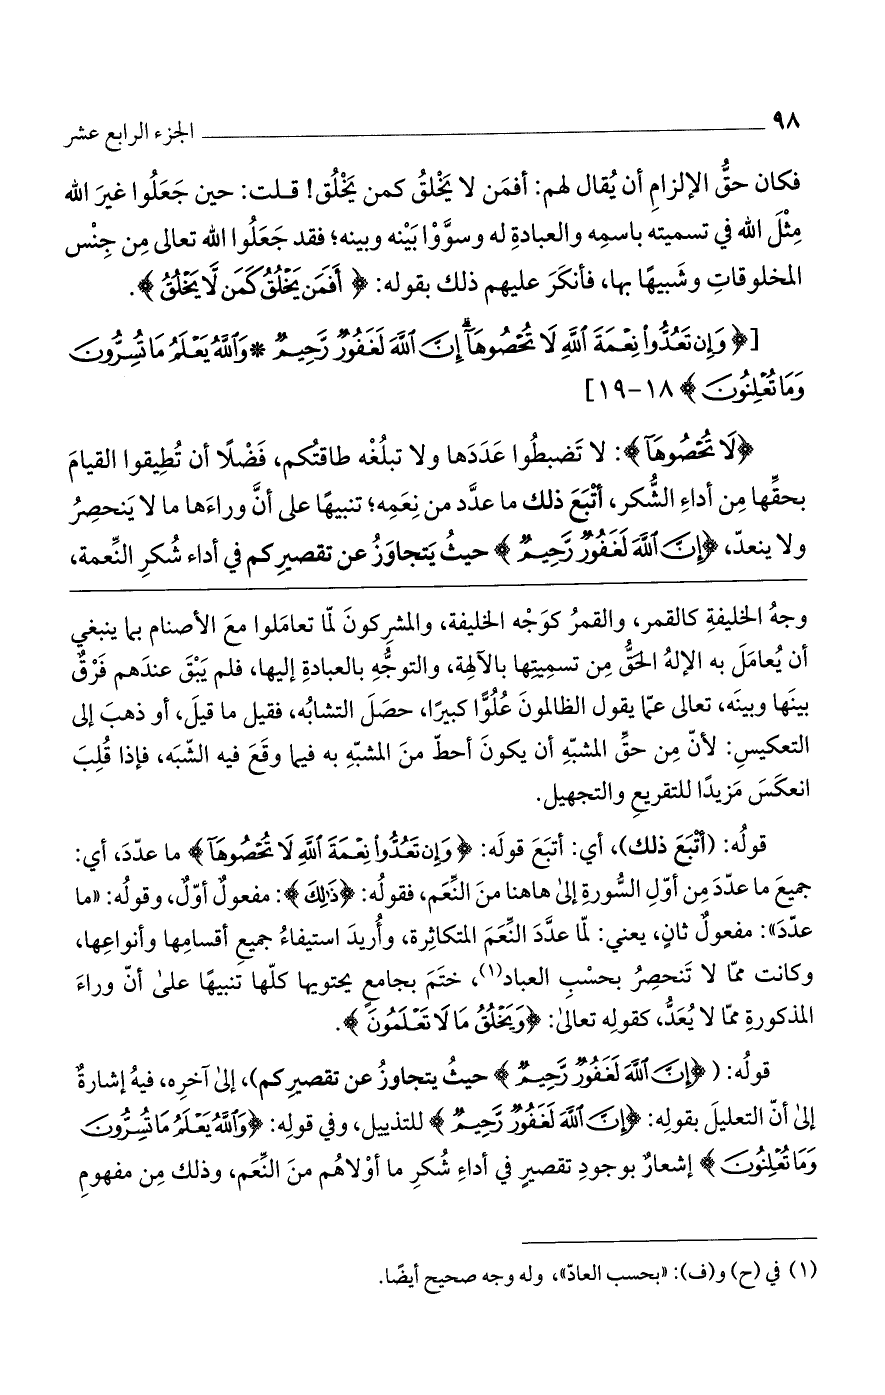 ٩٨ الجزء الرابع عشر
فكان حقُّ الإلزامِ أن يُقال لهم: أفمَن لا يَخْلقُ كمن يَخْلُق! قلت: حين جَعَلُوا غيرَ الله
مِثْلَ الله في تسميته باسمِه والعبادةِ له وسوَّوْا بَيْنه وبينه؛ فقد جَعَلُوا الله تعالى مِن جِنْس
المخلوقاتِ وشَبيهًا بها، فأنكَرَ عليهم ذلك بقوله: ﴿أَفَمَن يَخْلُقُ كَمَن لَّا يَخْلُقُ﴾.
[﴿وَإِن تَعُدُّوا نِعْمَةَ اللَّهِ لَا تُحْصُوهَآ ۗ إِنَّ اللَّهَ لَغَفُورٌ رَّحِيمٌ * وَاللَّهُ يَعْلَمُ مَا تُسِرُّونَ
وَمَا تُعْلِنُونَ﴾ ١٨-١٩]
﴿لَا تُحْصُوهَآ﴾: لا تَضبطُوا عَدَدَها ولا تبلُغْه طاقتُكم، فَضْلًا أن تُطِيقوا القيامَ
بحقِّها مِن أداءِ الشُّكر، أَتْبَعَ ذلك ما عدَّد من نِعَمِه؛ تنبيهًا على أنَّ وراءَها ما لا يَنحصِرُ
ولا ينعدّ، ﴿إِنَّ اللَّهَ لَغَفُورٌ رَّحِيمٌ﴾ حيثُ يَتجاوَزُ عن تقصيرِكم في أداء شُكرِ النِّعمة،
وجهُ الخليفةِ كالقمر، والقمرُ كوَجْه الخليفة، والمشرِكونَ لمّا تعامَلوا معَ الأصنام بما ينبغي
أن يُعامَلَ به الإلهُ الحَقُّ مِن تسمِيتِها بالآلهة، والتوجُّهِ بالعبادةِ إليها، فلم يَبْقَ عندَهم فَرْقٌ
بينَها وبينَه، تعالى عمّا يقول الظالمون عُلُوًّا كبيرًا، حصَلَ التشابُه، فقيل ما قيلَ، أو ذهبَ إلى
التعكيسِ: لأنّ مِن حقِّ المشبَّهِ أن يكونَ أحطّ منَ المشبَّهِ به فيما وقَعَ فيه الشَّبَه، فإذا قُلِبَ
انعكَسَ مَزيدًا للتقريعِ والتجهيل.
قولُه: (أَتْبَعَ ذلك)، أي: أتبَعَ قولَه: ﴿وَإِن تَعُدُّوا نِعْمَةَ اللَّهِ لَا تُحْصُوهَآ﴾ ما عدّدَ، أي:
جميعَ ما عدّدَ مِن أوّلِ السُّورةِ إلىٰ هاهنا منَ النِّعَم، فقولُه: ﴿ذَٰلِكَ﴾: مفعولٌ أوّلٌ، وقولُه: «ما
عدّدَ»: مفعولٌ ثانٍ، يعني: لمّا عدَّدَ النِّعَمَ المتكاثِرة، وأُريدَ استيفاءُ جميعِ أقسامِها وأنواعِها،
وكانت ممّا لا تَنحصِرُ بحسْبِ العباد(١)، ختَمَ بجامعٍ يحتويها كلّها تنبيهًا علىٰ أنّ وراءَ
المذكورةِ ممّا لا يُعَدُّ، كقولِه تعالىٰ: ﴿وَيَخْلُقُ مَا لَا تَعْلَمُونَ﴾.
قولُه: (﴿إِنَّ اللَّهَ لَغَفُورٌ رَّحِيمٌ﴾ حيثُ يتجاوزُ عن تقصيرِكم)، إلىٰ آخرِه، فيهُ إشارةٌ
إلىٰ أنّ التعليلَ بقولِه: ﴿إِنَّ اللَّهَ لَغَفُورٌ رَّحِيمٌ﴾ للتذييل، وفي قولِه: ﴿وَاللَّهُ يَعْلَمُ مَا تُسِرُّونَ
وَمَا تُعْلِنُونَ﴾ إشعارٌ بوجودِ تقصيرٍ في أداءِ شُكرِ ما أوْلاهُم منَ النِّعَم، وذلك مِن مفهومِ
(١) في (ح) و(ف): «بحسب العادّ»، وله وجه صحيح أيضًا.